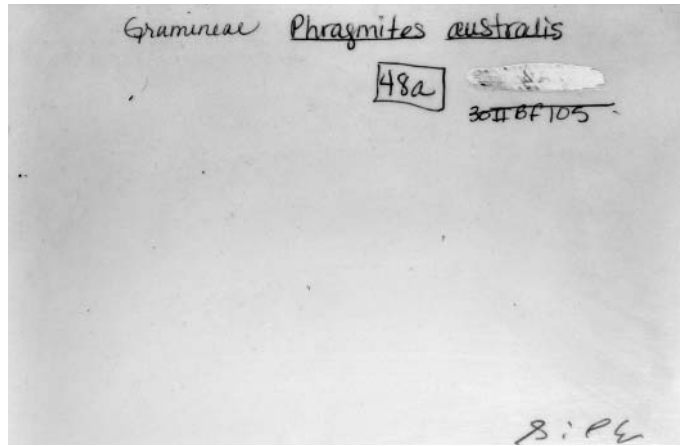 Gramineae Phragmites australis
48a
30II BF105